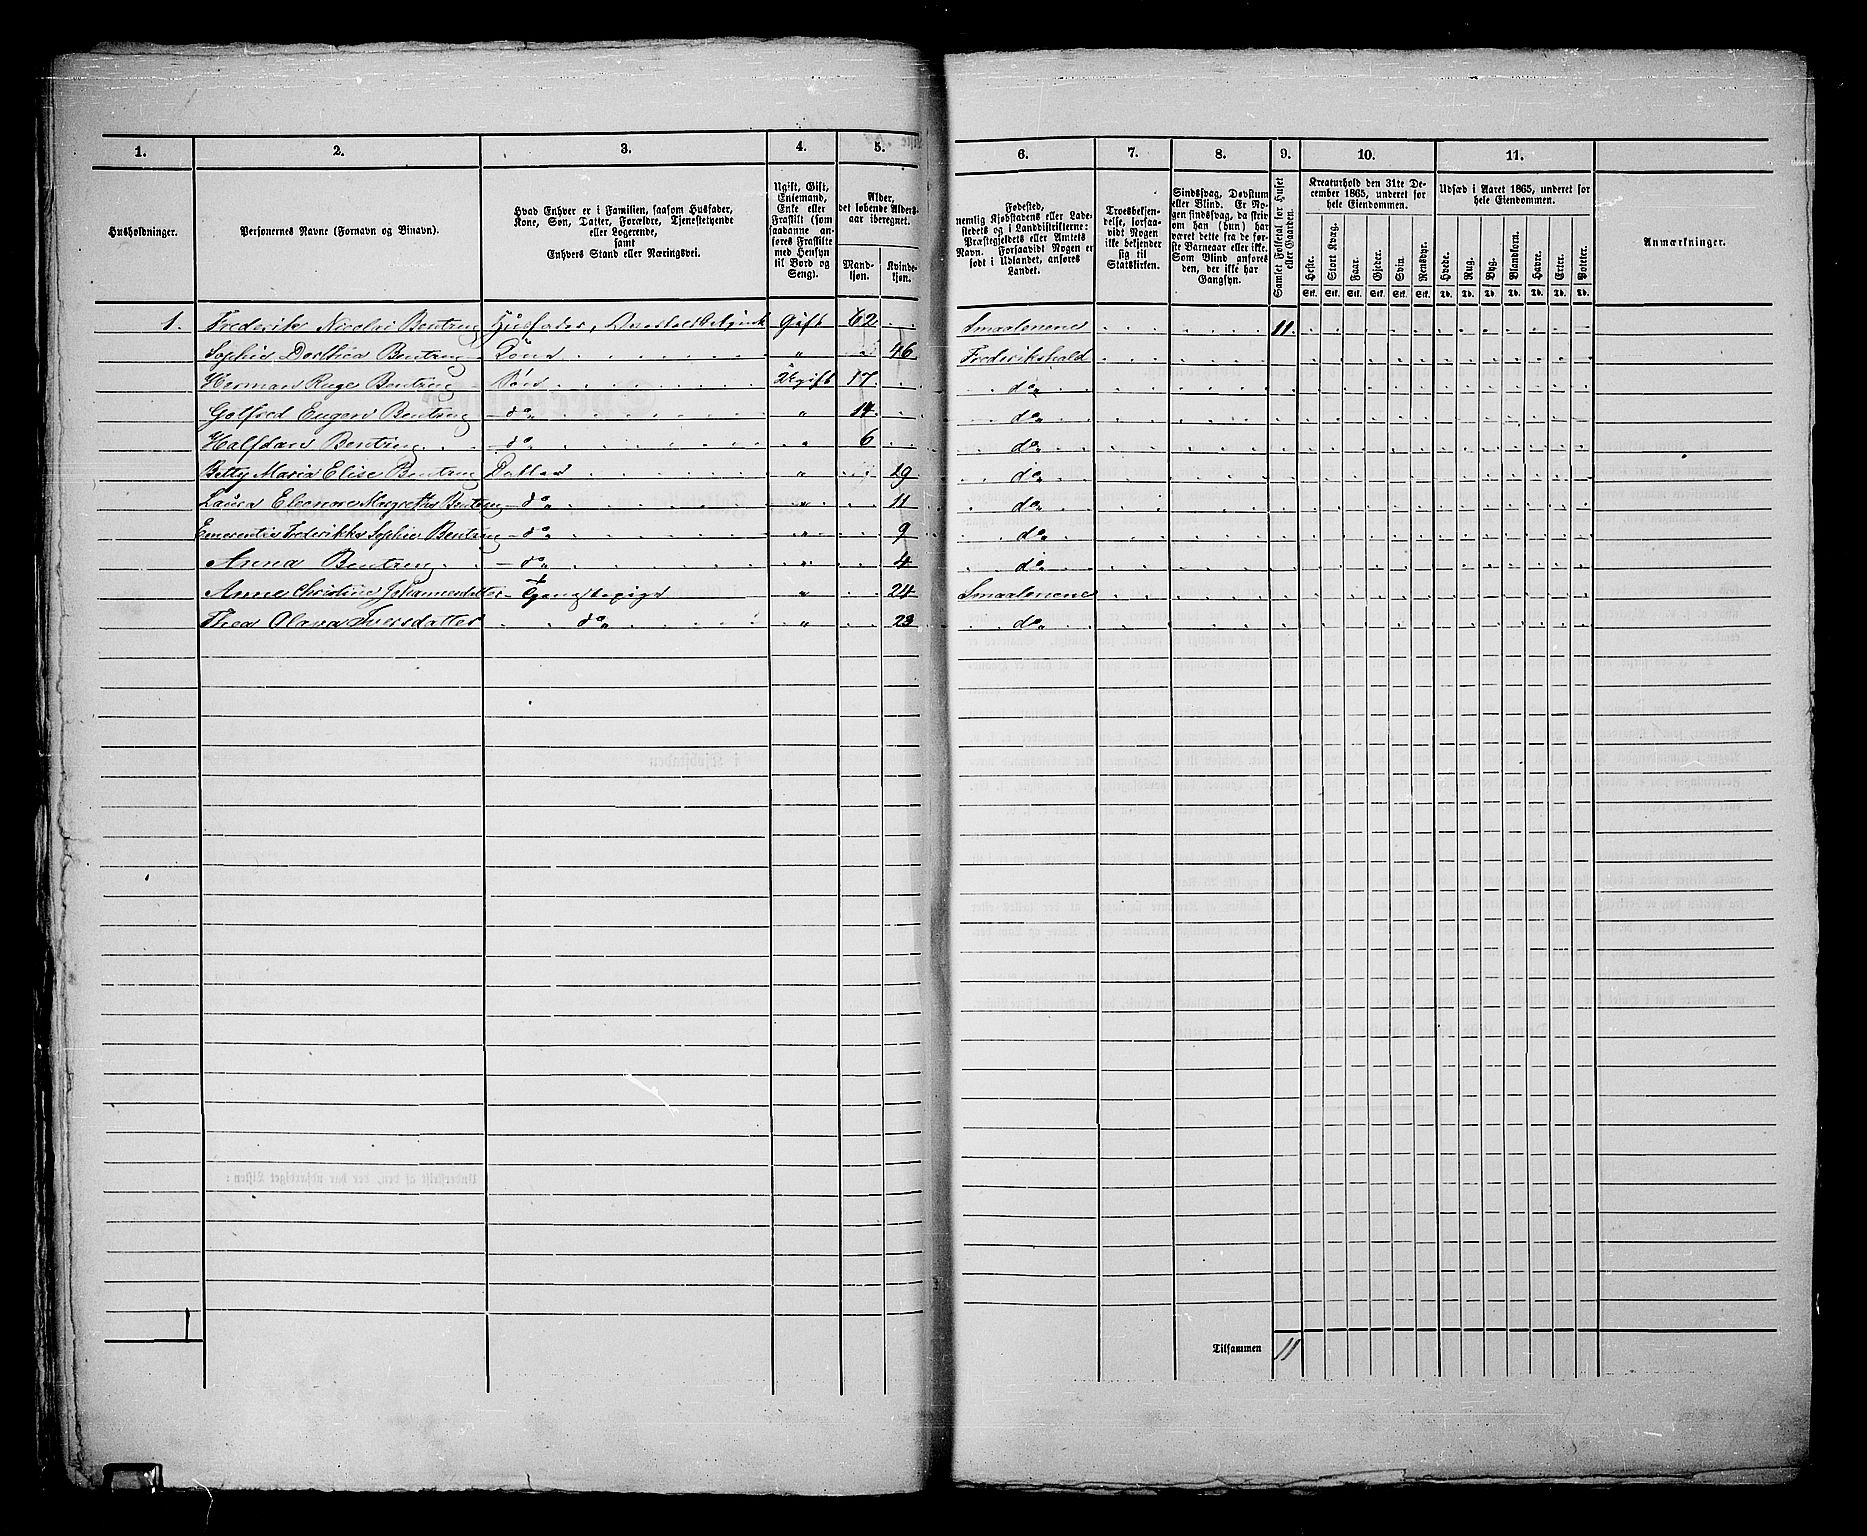 1. 2. 3. 4. 5. 6. 7. 8. 9. 10. 11.
Husholdninger.
Personernes Navne (Fornavn og Binavn).
Hvad Enhver er i Familien, saasom Husfader,
Kone, Søn, Datter, Forældre, Tjenestetyende
eller Logerende,
samt
Enhvers Stand eller Næringsvei.
Ugift, Gift,
Enkemand,
Enke eller
Fraskilt (som
saadanne an-
føres Fraskilte
med Hensyn
til Bord og
Seng).
Alder,
det løbende Alders-
aar iberegnet.
Mand-
kjøn.
Kvinde-
kjøn.
Fødested,
nemlig Kjøbstadens eller Lade-
stedets og i Landdistrikterne:
Præstegjeldets eller Amtets
Navn. Forsaavidt Nogen er
født i Udlandet, anføres
Landet.
Troesbekjen-
delse, forsaa-
vidt Nogen
ikke bekjender
sig til
Statskirken.
Sindssvag, Døvstum
eller Blind. Er No-
gen sindssvag, da skriv
om han (hun) har
været dette fra de før-
ste Barneaar eller ikke.
Som Blind anføres
den, der ikke har
Gangsyn.
Samlet Folketal for Huset
eller Gaarden.
Kreaturhold den 31te De-
cember 1865, underet for
hele Eiendommen.
Heste. Stort Kvæg. Faar. Gjeder. Svin. Rensdyr.
Stk. Stk. Stk. Stk. Stk. Stk.
Udsæd i Aaret 1865, underet for
hele Eiendommen.
Hvede. Rug. Byg. Blandkorn. Havre. Erter. Poteter.
Td. Td. Td. Td. Td. Td. Td.
Anmærkninger.
1. Frederik Nicolai Bentzen Husfader, Gift 62 Smaalenene 11.
Sophie Dorthea Bentzen Kone " 46 Frederikshald
Herman Ruge Bentzen Søn Ugift 17 do
Gotfred Eugen Bentzen do " 14 do
Halfdan Bentzen do " 6 do
Betty Maria Elise Bentzen Datter " 19 do
Laura Eleonore Margrethe Bentzen do " 11 do
Emerentie Frederikke Sophie Bentzen do " 9 do
Anna Bentzen do " 4 do
Anne Christine Johannesdatter " 24 Smaalenene
Thea Olava Iversdatter do " 23 do
1
Tilsammen 11